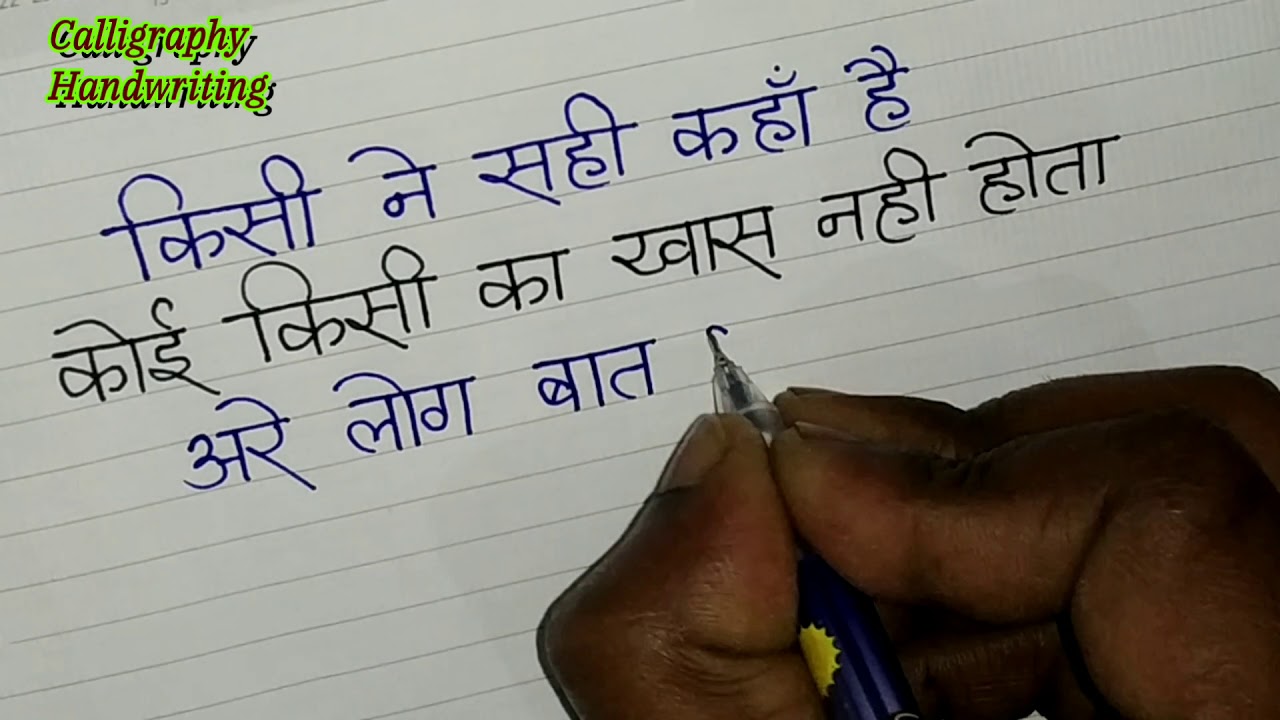 Calligraphy
Handwriting
किसी ने सही कहाँ है
कोई किसी का खास नही होता
अरे लोग बात